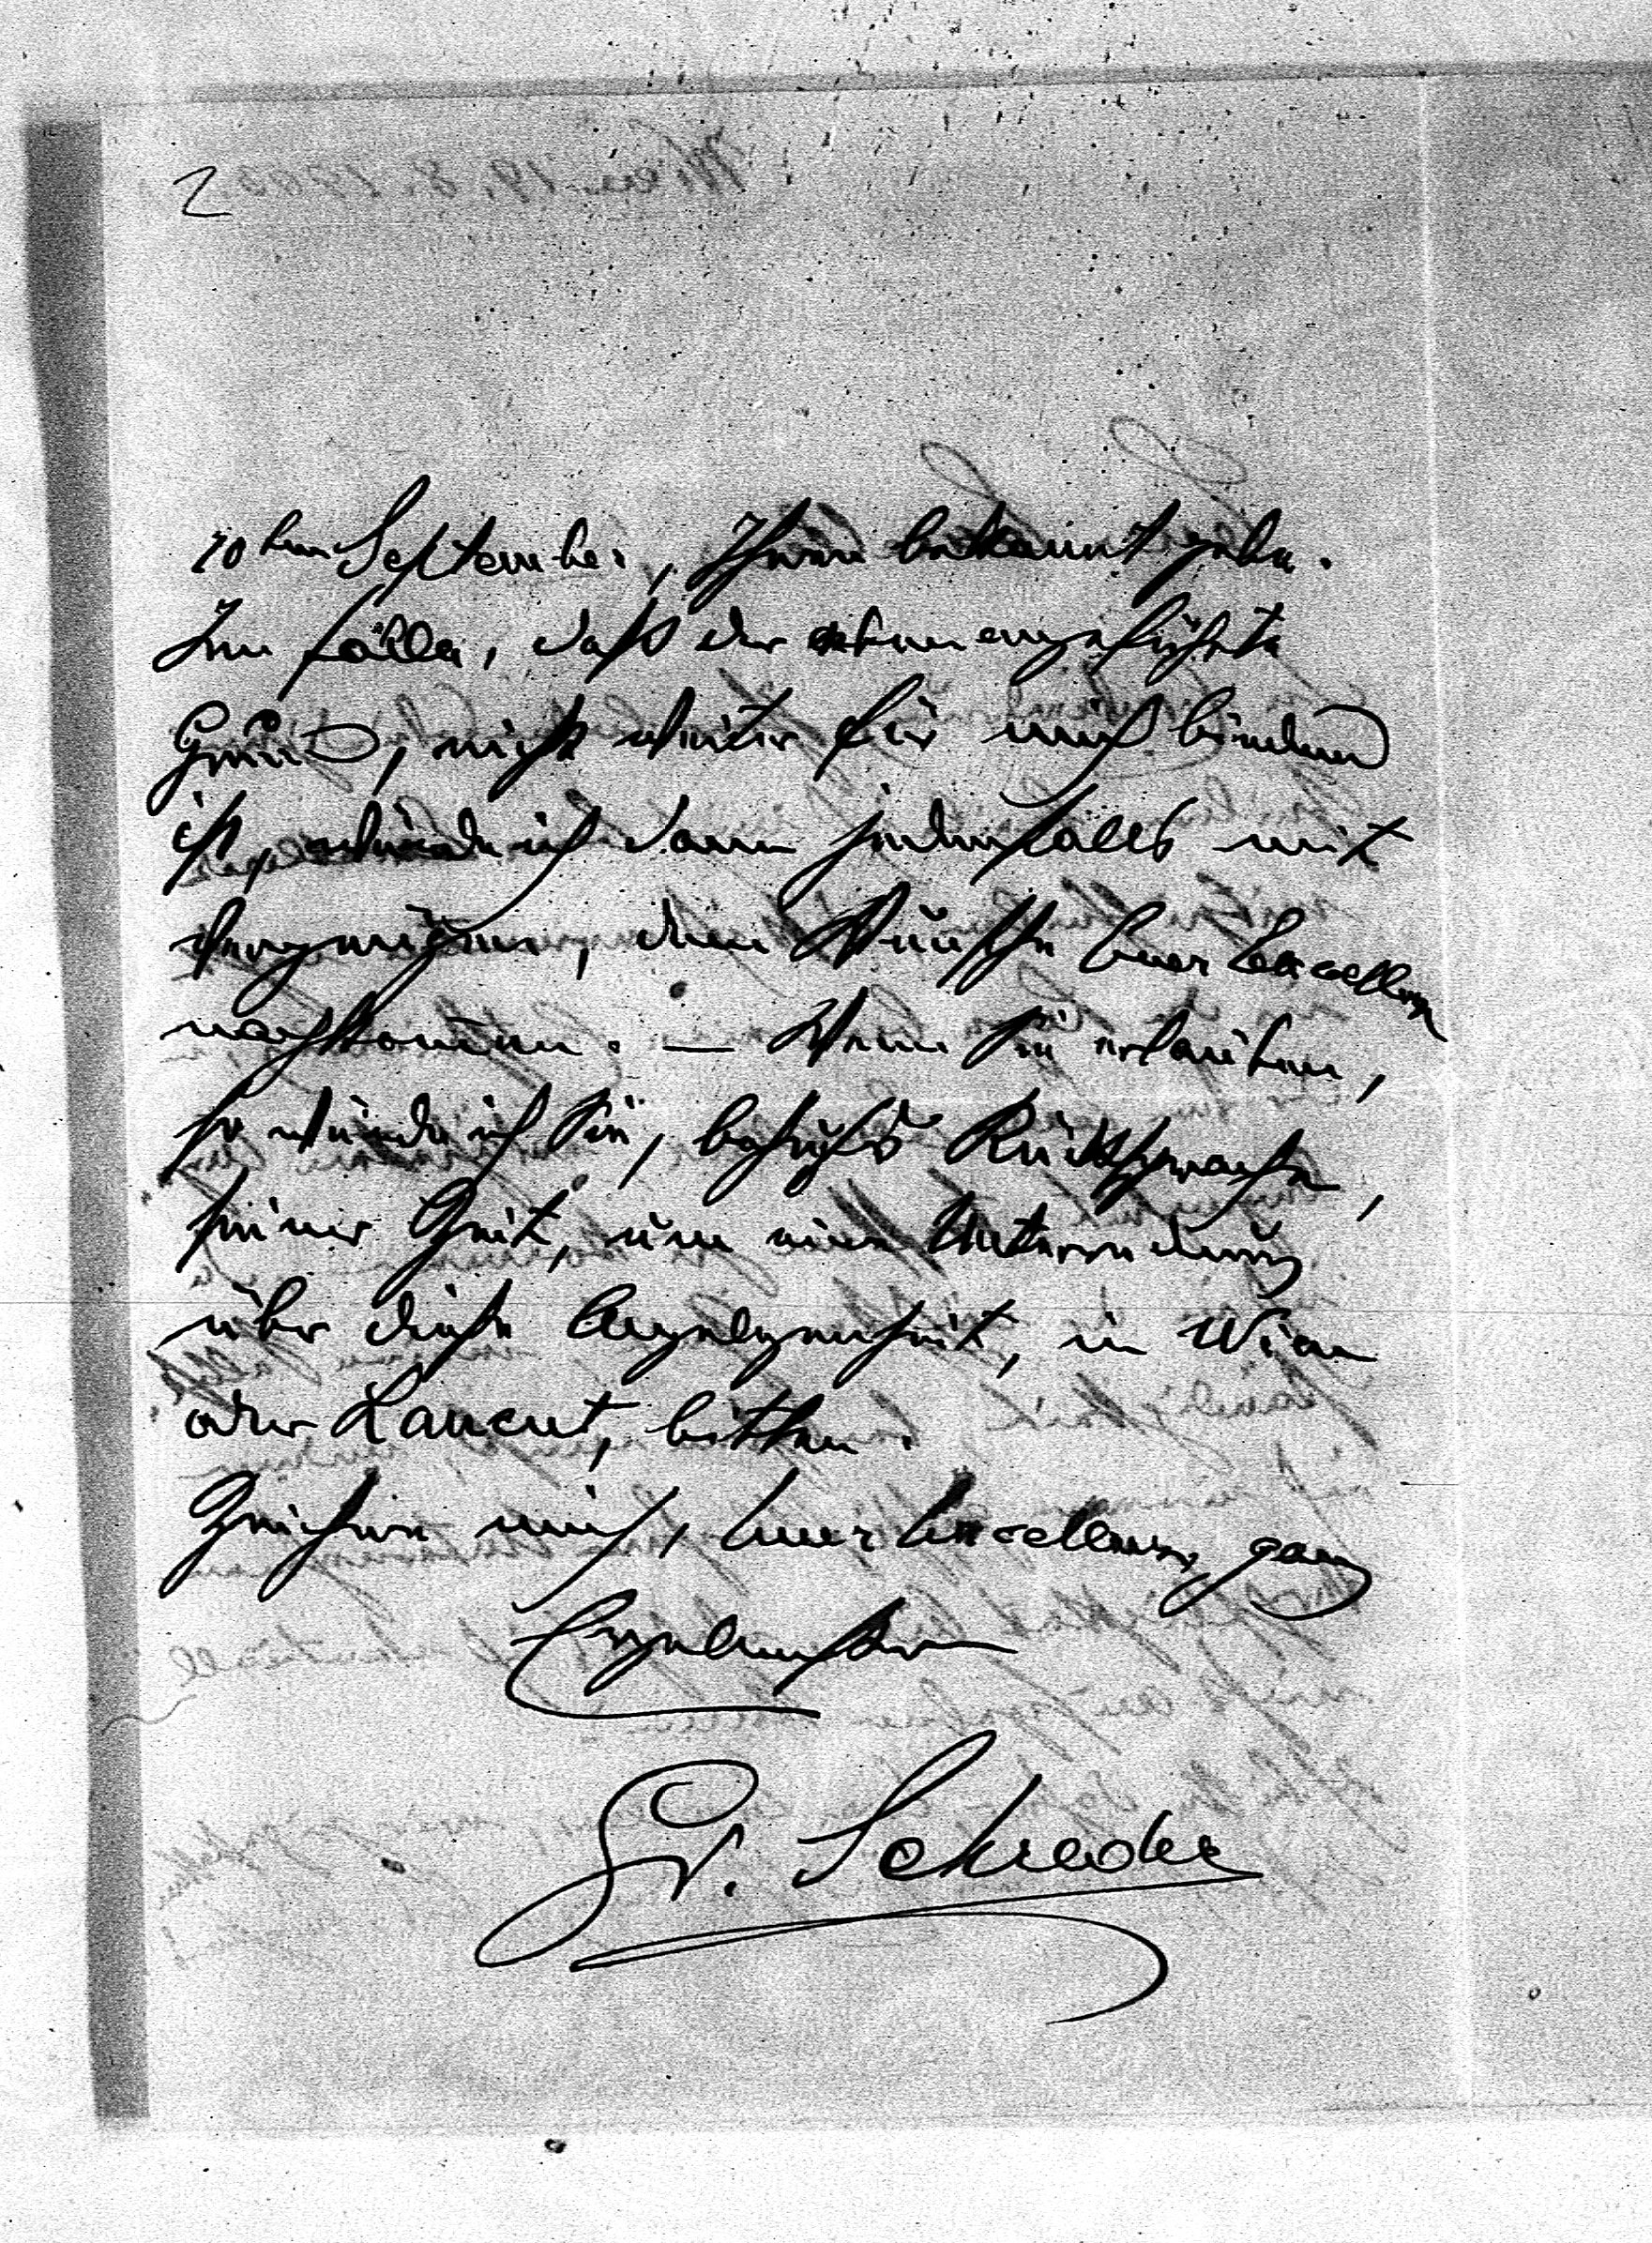 2
10ten September, Ihnen bekannt gebe.
Im Falle, daß der oben angeführte
Grund, nicht weiter für mich bindend
ist, würde ich dann jedenfalls mit
Vergnügen, dem Wunsche Euer Excellenz
nachkommen. — Wenn Sie erlauben,
so würde ich Sie, behufs Rücksprache,
seiner Zeit, um eine Unterredung
über diese Angelegenheit, in Wien
oder Lancut, bitten.
Zeichne mich, Euer Excellenz, ganz
Ergebenster
Schreder